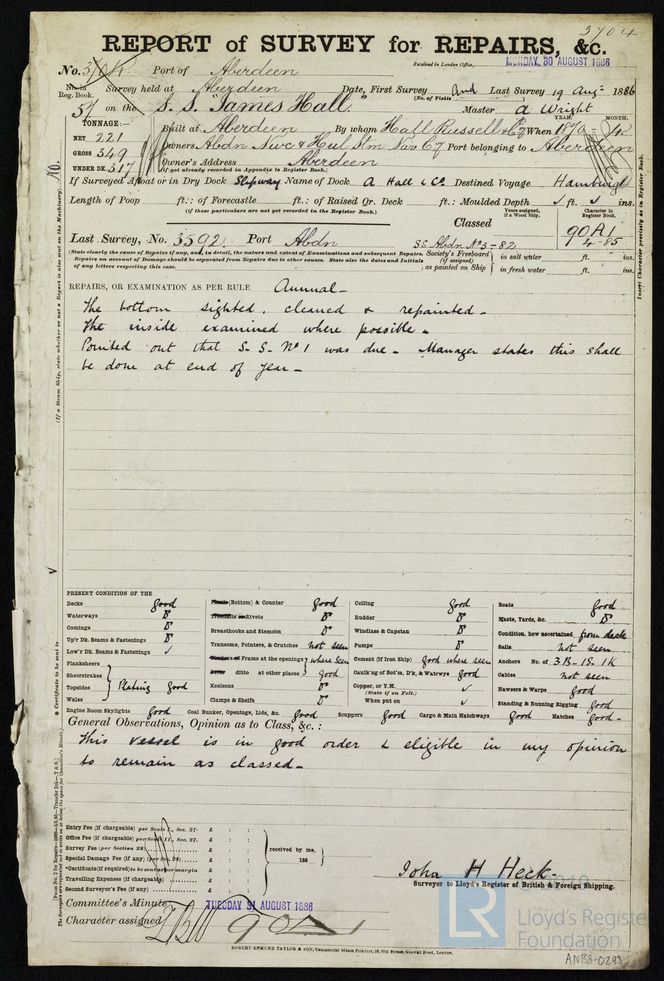 3704
REPORT of SURVEY for REPAIRS, &c.
Received in London Office, MONDAY, 30 AUGUST 1886
Port of Aberdeen
No. in Reg. Book. Survey held at Aberdeen Date, First Survey and Last Survey 19 Aug: 1886
(No. of Visits
57 on the S. S. "James Hall" Master A Wright
TONNAGE:—
YEAR. MONTH.
NET 221 Built at Aberdeen By whom Hall Russell & Co When 1870
GROSS 349 Owners Abdn Newc & Hull Stm Nav Co Port belonging to Aberdeen
UNDER DK. 317 Owner's Address Aberdeen
(If not already recorded in Appendix to Register Book.)
If Surveyed Afloat or in Dry Dock Slipway Name of Dock A Hall & Co Destined Voyage Hamburgh
Length of Poop ft.: of Forecastle ft.: of Raised Qr. Deck ft.: Moulded Depth ft. ins.
(If these particulars are not yet recorded in the Register Book.)
Years assigned, if a Wood Ship.
Character in Register Book.
Classed 90A1
4-85
Last Survey, No. 3592 Port Abdn S.S. Abdn No 3-82
(State clearly the cause of Repairs if any, and, in detail, the nature and extent of Examinations and subsequent Repairs.
Repairs on account of Damage should be separated from Repairs due to other causes. State also the dates and Initials
of any letters respecting this case.
Society's Freeboard (if assigned) as painted on Ship
in salt water ft. ins.
in fresh water ft. ins.
REPAIRS, OR EXAMINATION AS PER RULE Annual-
The bottom sighted, cleaned & repainted-
The inside examined where possible-
Pointed out that S.S. No 1 was due- Manager states this shall
be done at end of year-
PRESENT CONDITION OF THE
Decks good
Waterways Do
Comings Do
Up'r Dk. Beams & Fastenings Do
Low'r Dk. Beams & Fastenings ✓
Planksheers
Sheerstrakes
Topsides
Wales
Plating good
Engine Room Skylights good
(Bottom) & Counter good
Rivets Do
Breasthooks and Stemson Do
Transoms, Pointers, & Crutches not seen
Frame at the openings where seen
ditto at other places good
Keelsons Do
Clamps & Shelfs Do
Coal Bunker, Openings, Lids, &c. good
Ceiling good
Rudder Do
Windlass & Capstan Do
Pumps Do
Cement (if Iron Ship) good where seen
Caulk'ng of Bot'm, D'k, & Watrwys good
Copper, or Y.M. ✓
(State if on Felt.)
When put on ✓
Scuppers good Cargo & Main Hatchways good
Boats good
Masts, Yards, &c. Do
Condition, how ascertained from deck
Sails not seen
Anchors No. of 3B-1S. 1K
Cables not seen
Hawsers & Warps good
Standing & Running Rigging good
Hatches good-
General Observations, Opinion as to Class, &c.:
This vessel is in good order & eligible in my opinion
to remain as classed-
Entry Fee (if chargeable) per Scale I., Sec. 27. £ : :
Office Fee (if chargeable) per Scale II., Sec. 27. £ : :
Survey Fee (per Section 28) £ : :
Special Damage Fee (if any) (per Sec. 28) £ : :
*Certificate (if required) to be sent as per margin
Travelling Expenses (if chargeable) £ : :
Second Surveyor's Fee (if any) £ : :
received by me,
188
John H Heck
Surveyor to Lloyd's Register of British & Foreign Shipping.
Committee's Minute TUESDAY 31 AUGUST 1886
Character assigned 90A1
ROBERT EDMUND TAYLOR & SON, Commercial Steam Printers, 19, Old Street, Goswell Road, London.
LR
Lloyd's Register
Foundation
ANB8-0293